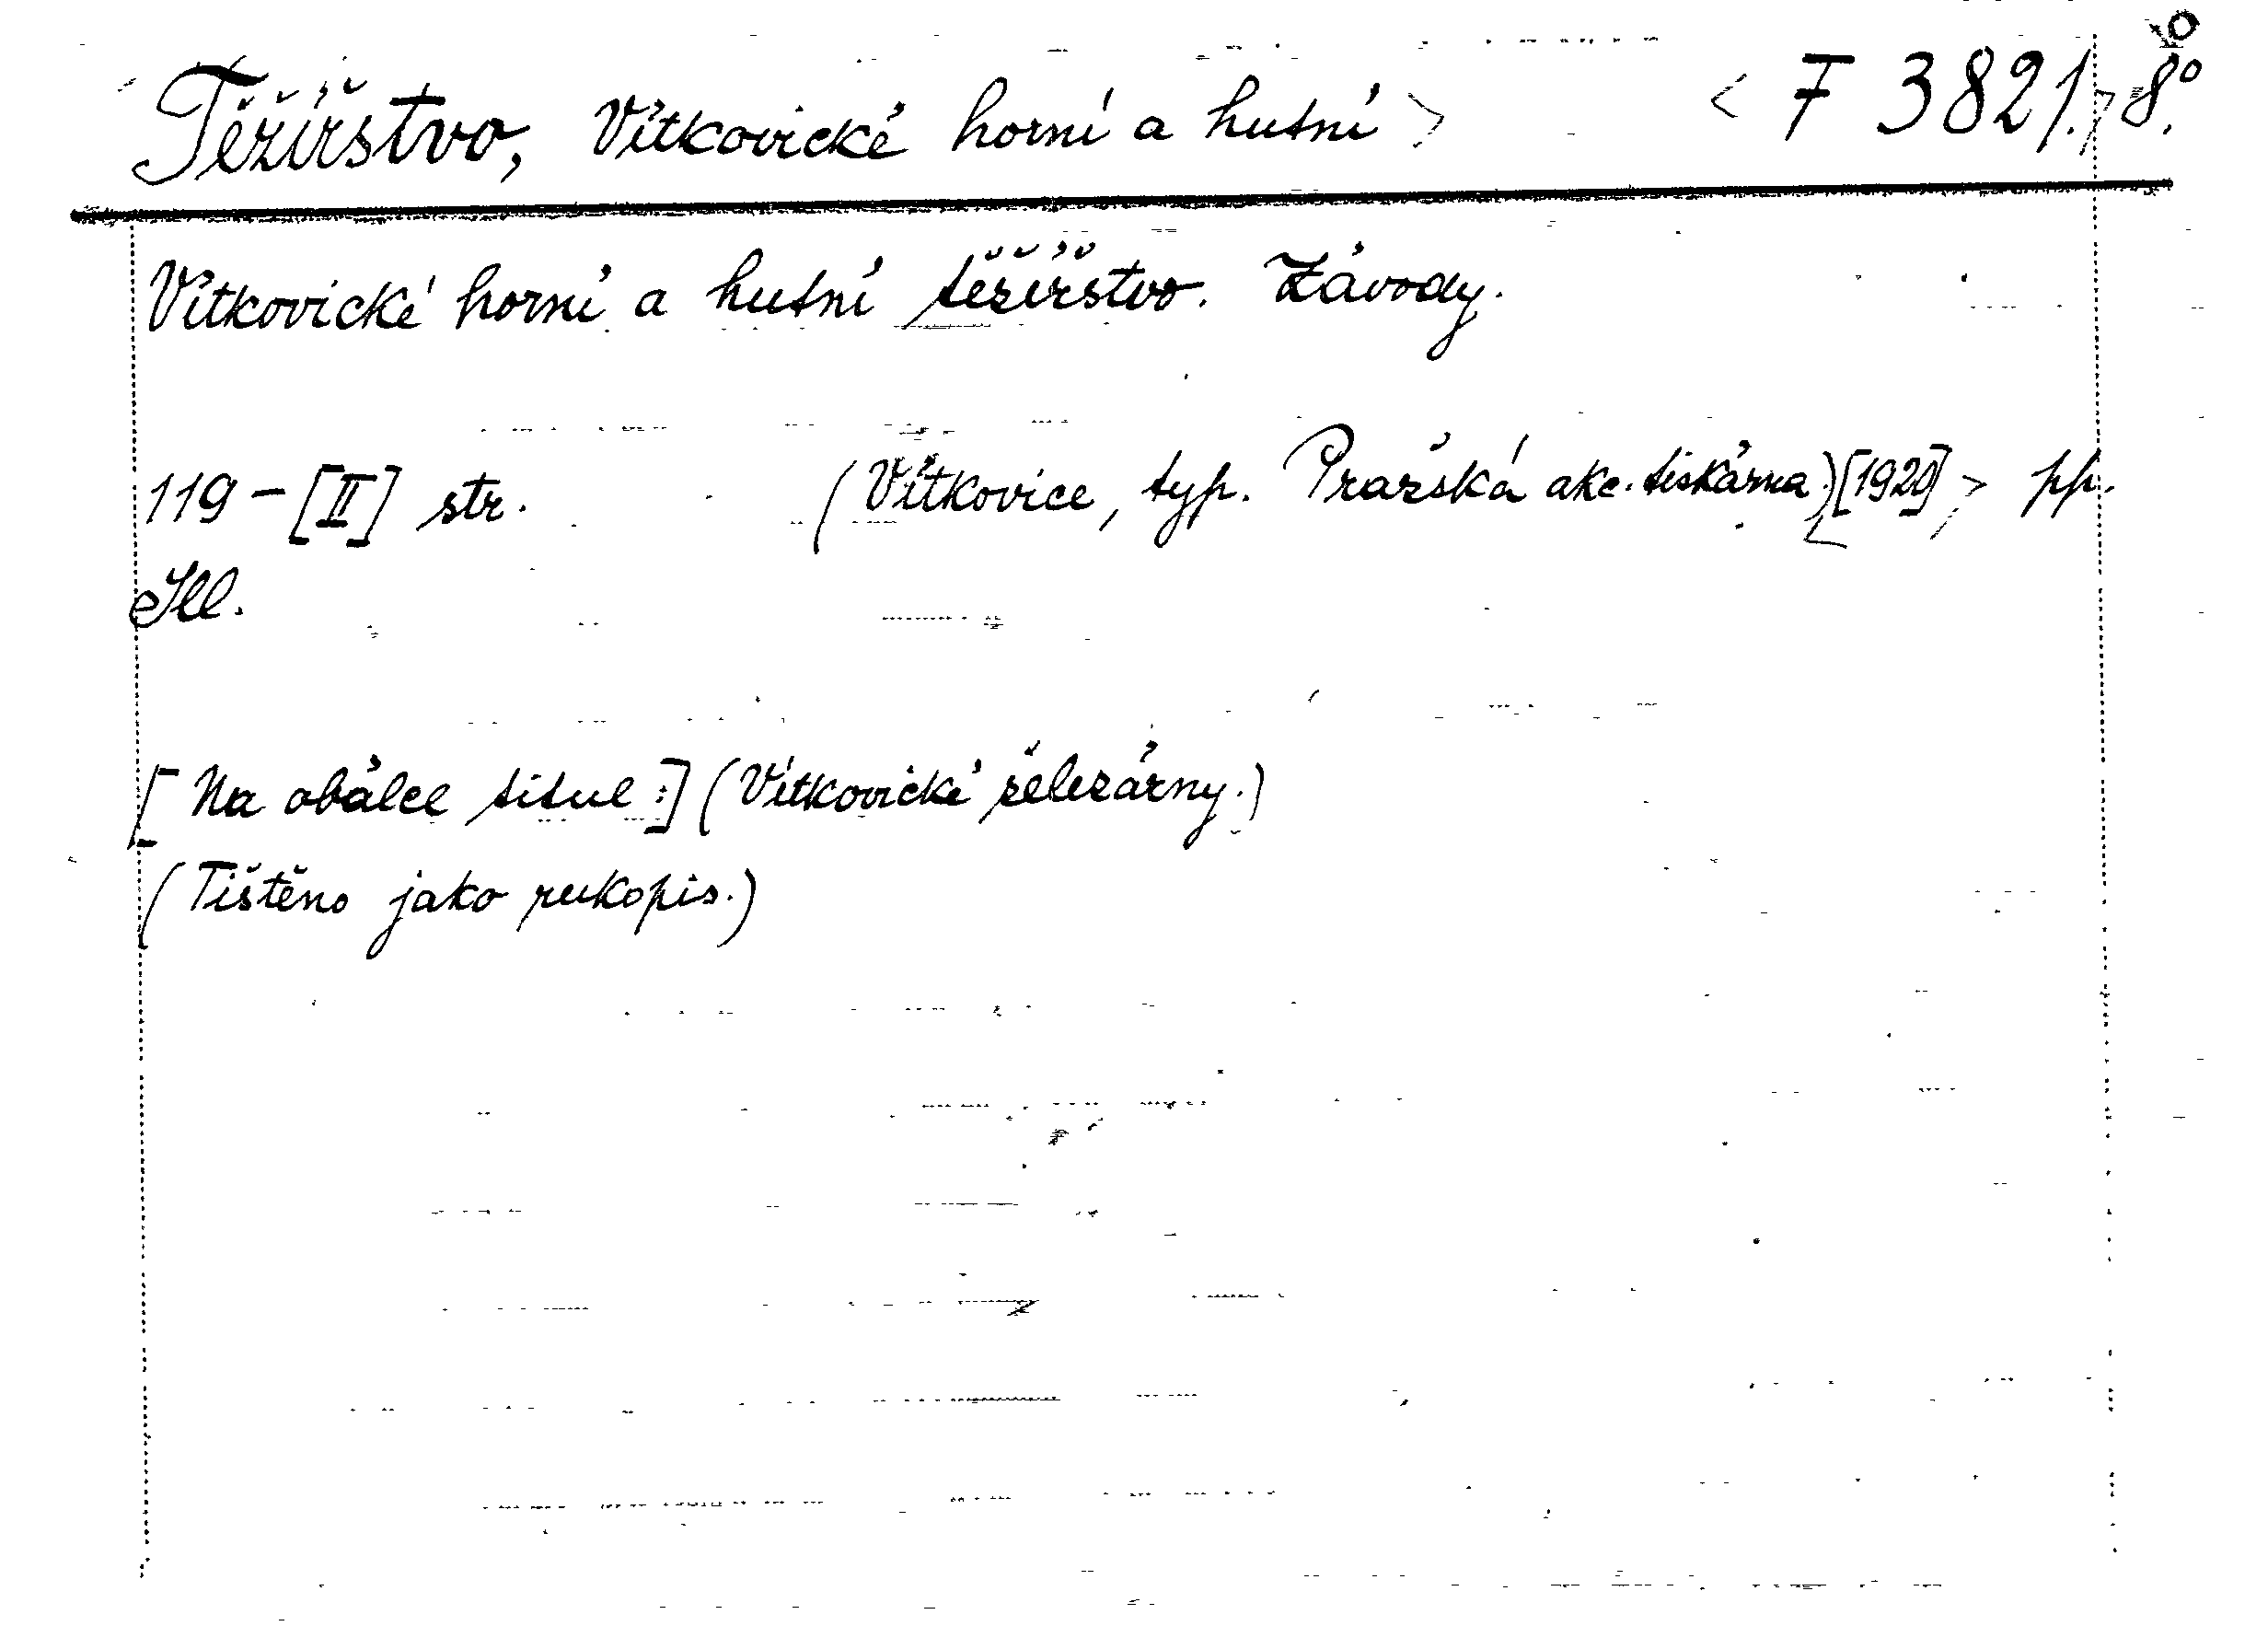 Těžířstvo, Vítkovické horní a hutní > < F 3821.> 8°.
Vítkovické horní a hutní těžířstvo. Závody.
119 – [II] str. (Vítkovice, typ. Pražská akc. tiskárna.) [1920] > pp.
Ill.
[Na obálce titul:] (Vítkovické železárny.)
(Tištěno jako rukopis.)